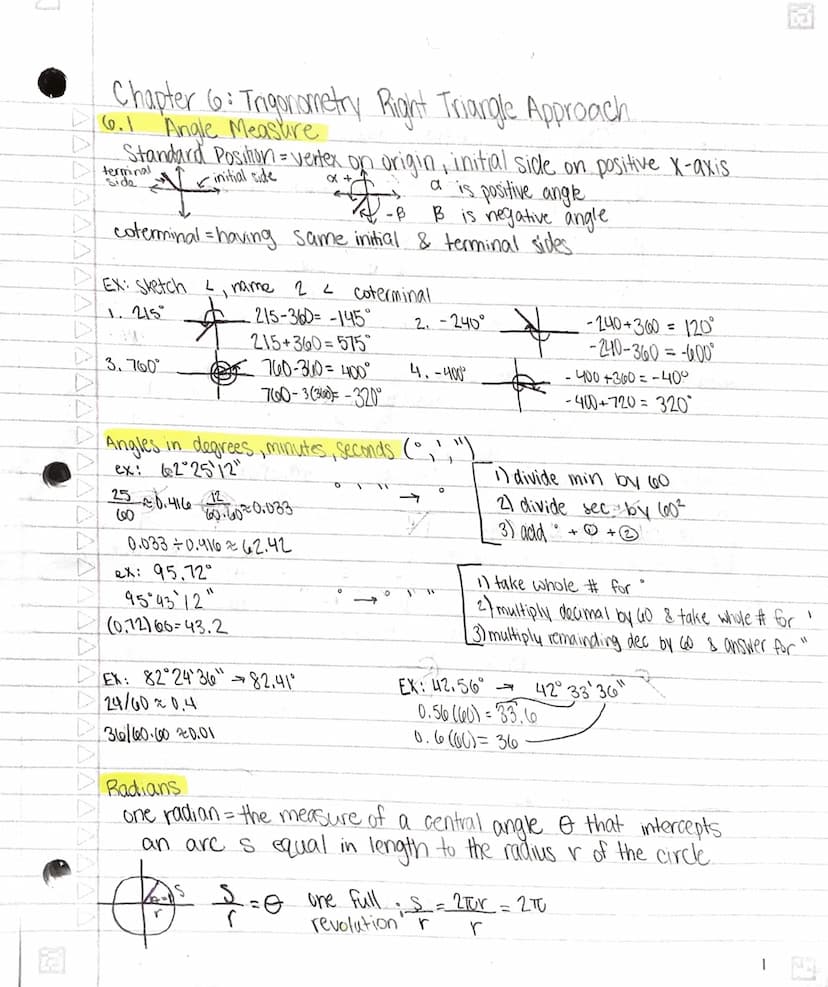 Chapter 6: Trigonometry Right Triangle Approach
6.1 Angle Measure
Standard Position = vertex on origin, initial side on positive x-axis
terminal side initial side α + α is positive angle
-β β is negative angle
coterminal = having same initial & terminal sides
EX: sketch ∠, name 2 ∠ coterminal
1. 215° 215-360= -145° 2. -240° -240+360 = 120°
215+360=575° -240-360 = -600°
3. 760° 760-360= 400° 4. -400° -400+360=-40°
760-3(360)= -320° -400+720= 320°
Angles in degrees, minutes, seconds (°, ', ")
ex: 62°25'12" 1) divide min by 60
25/60 ≈ 0.416 12/60.60 ≈ 0.033 ° ' " → ° 2) divide sec. by 60²
3) add ° + ① + ②
0.033 ÷ 0.416 ≈ 62.42
ex: 95.72° 1) take whole # for °
95°43'12" ° → ° ' " 2) multiply decimal by 60 & take whole # for '
(0.72)60=43.2 3) multiply remainding dec by 60 & answer for "
EX: 82°24'36" → 82.41° EX: 42.56° → 42° 33'36"
24/60 ≈ 0.4 0.56(60) = 33.6
36/60.60 ≈0.01 0.6(60)= 36
Radians
one radian = the measure of a central angle θ that intercepts
an arc s equal in length to the radius r of the circle
s r s/r = θ one full revolution: s/r = 2πr/r = 2π
1